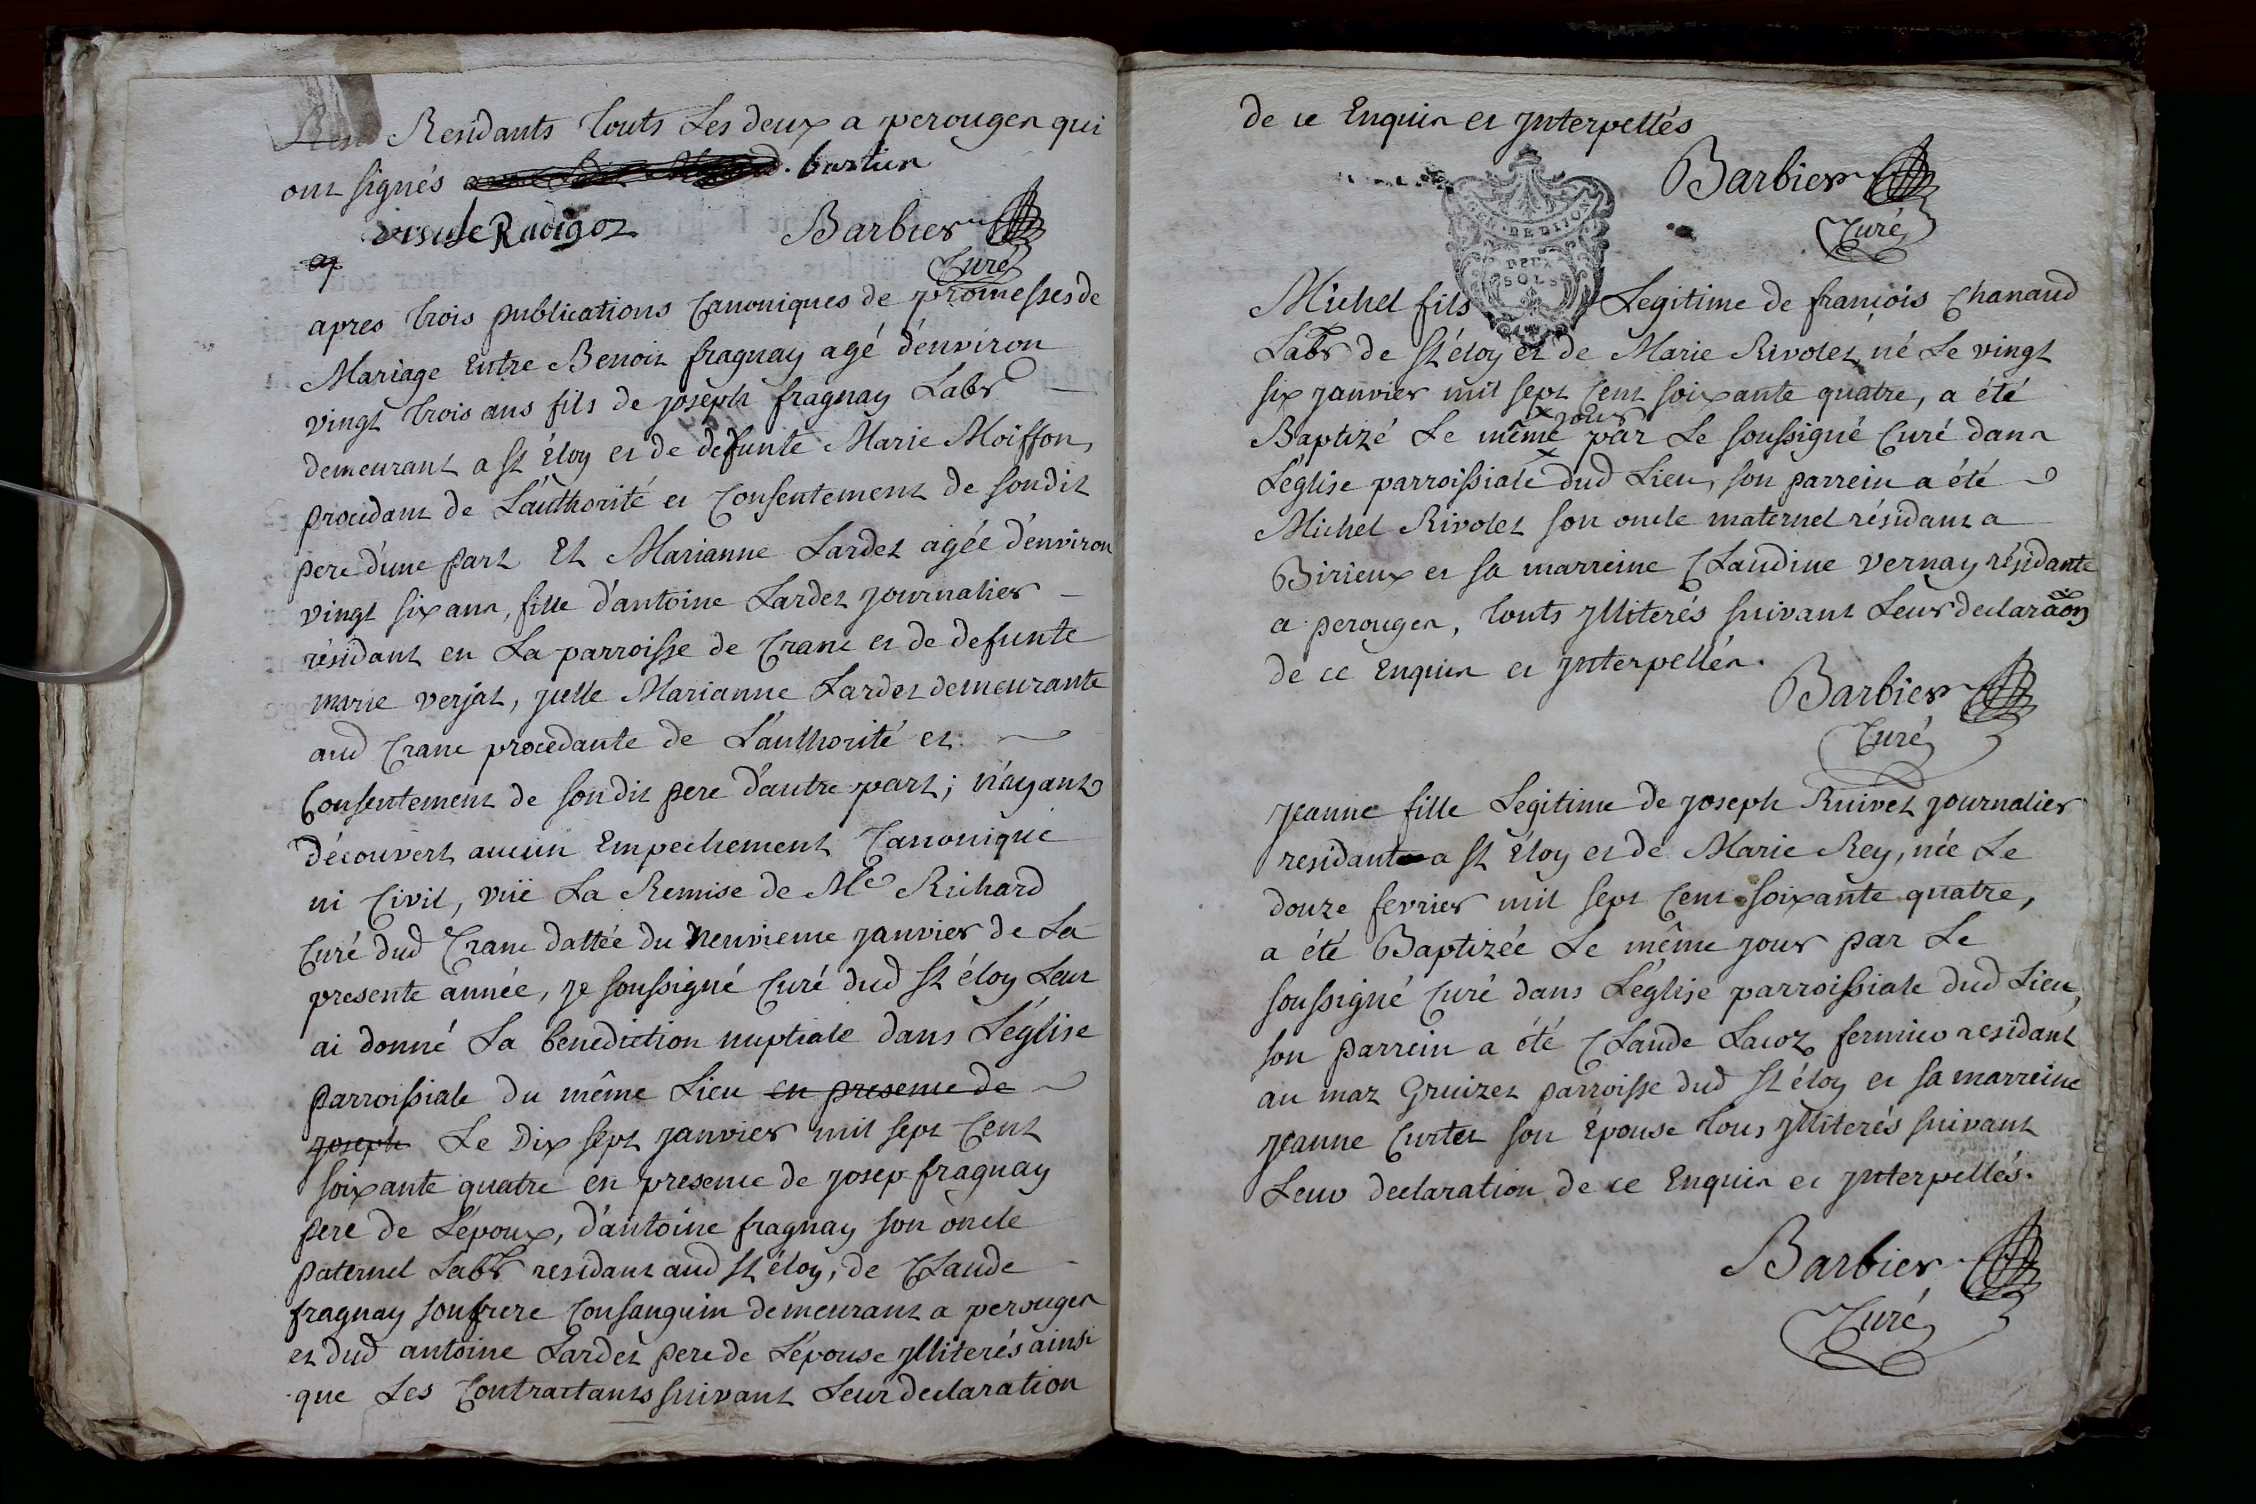 Residants touts Les deux a perouges qui
ont signés bastien
ursule Radigoz Barbier
Curé
apres trois publications Canoniques de promesses de
Mariage Entre Benoit fragnay agé d'environ
vingt trois ans fils de joseph fragnay Labr
demeurant a st Eloy et de defunte Marie Moisson,
procedant de L'authorité et Consentement de sondit
pere d'une part Et Marianne Lardet agée d'environ
vingt six ans, fille d'antoine Lardet journalier
résidant en La parroisse de Crane et de defunte
marie verjat, ycelle Marianne Lardet demeurante
aud Crane procedante de L'authorité et
Consentement de sondit pere d'autre part; n'ayant
découvert aucun Empechement Canonique
ni Civil, vüe La Remise de Me Richard
Curé dud Crane dattée du Neuvieme janvier de La
presente année, je soussigné Curé dud st éloy Leur
ai donné La benediction nuptiale dans L'église
parroissiale du même Lieu en presence de
joseph Le dix sept janvier mil sept Cent
soixante quatre en presence de josep fragnay
pere de L'époux, d'antoine fragnay son oncle
paternel Labr residant aud st éloy, de Claude
fragnay son frere Consanguin demeurant a perouges
et dud antoine Lardet pere de L'épouse jlliterés ainsi
que Les Contractants suivant Leur declaration
de ce Enquis et jnterpellés
Barbier
Curé
GEN. DE DIJON
DEUX
SOLS
Michel fils Legitime de françois Chanaud
Labr de st éloy et de Marie Rivolet né Le vingt
six janvier mil sept Cent soixante quatre, a été
jour
Baptizé Le même par Le soussigné Curé dans
L'église parroissiale dud Lieu, son parrein a été
Michel Rivolet son oncle maternel résidant a
Birieux et sa marreine Claudine vernay résidante
a perouges, touts jlliterés suivant Leur declaraõn
de ce Enquis et jnterpellés.
Barbier
Curé
jeanne fille Legitime de joseph Ruivet journalier
resident a st Eloy et de Marie Rey, née Le
douze fevrier mil sept Cent soixante quatre,
a été Baptizée Le même jour par Le
soussigné Curé dans L'église parroissiale dud Lieu,
son parrein a été Claude Lacoz fermier residant
au maz Gruizet parroisse dud st éloy et sa marreine
jeanne Curtet son Epouse tous jlliterés suivant
Leur declaration de ce Enquis et jnterpellés.
Barbier
Curé